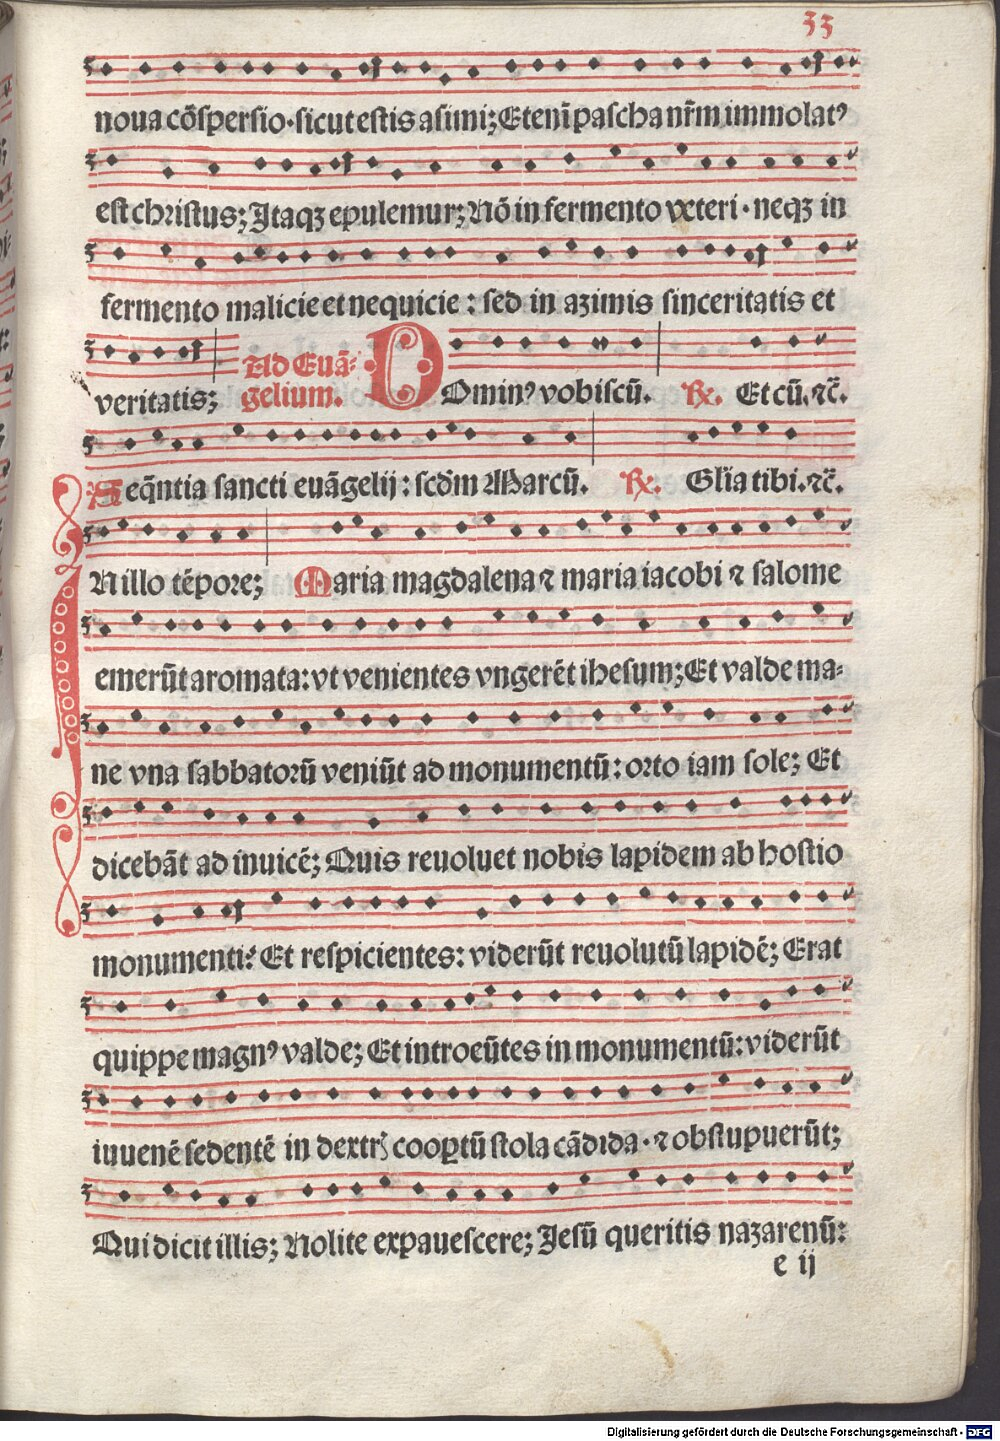 33
noua cõſperſio·ſicut eſtis aſimi; Etenĩ paſcha nr̃m immolatꝰ
eſt chꝛiſtus; Jtaqꝫ epulemur; Nõ in fermento vꝛteri · neqꝫ in
fermento malicie et nequicie : ſed in azimis ſinceritatis et
veritatis;
Ad Euã⸗
gelium.
DOminꝰ vobiſcũ. ℟. Et cũ. ⁊c̃.
Seq̃ntia ſancti euãgelij : ſcd̃m Marcũ. ℟. Gl̃ia tibi. ⁊c̃.
IN illo tẽpoꝛe; Maria magdalena ⁊ maria iacobi ⁊ ſalome
emerũt aromata: vt venientes vngerẽt iheſum; Et valde ma⸗
ne vna ſabbatoꝛũ veniũt ad monumentũ: oꝛto iam ſole; Et
dicebãt ad inuicẽ; Quis reuoluet nobis lapidem ab hoſtio
monumenti? Et reſpicientes: viderũt reuolutũ lapidẽ; Erat
quippe magnꝰ valde; Et introeũtes in monumentũ: viderũt
iuuenẽ ſedentẽ in dextrꝭ cooꝑtũ ſtola cãdida · ⁊ obſtupuerũt;
Qui dicit illis; Nolite expaueſcere; Jeſũ queritis nazarenũ:
e ij
Digitalisierung gefördert durch die Deutsche Forschungsgemeinschaft - DFG